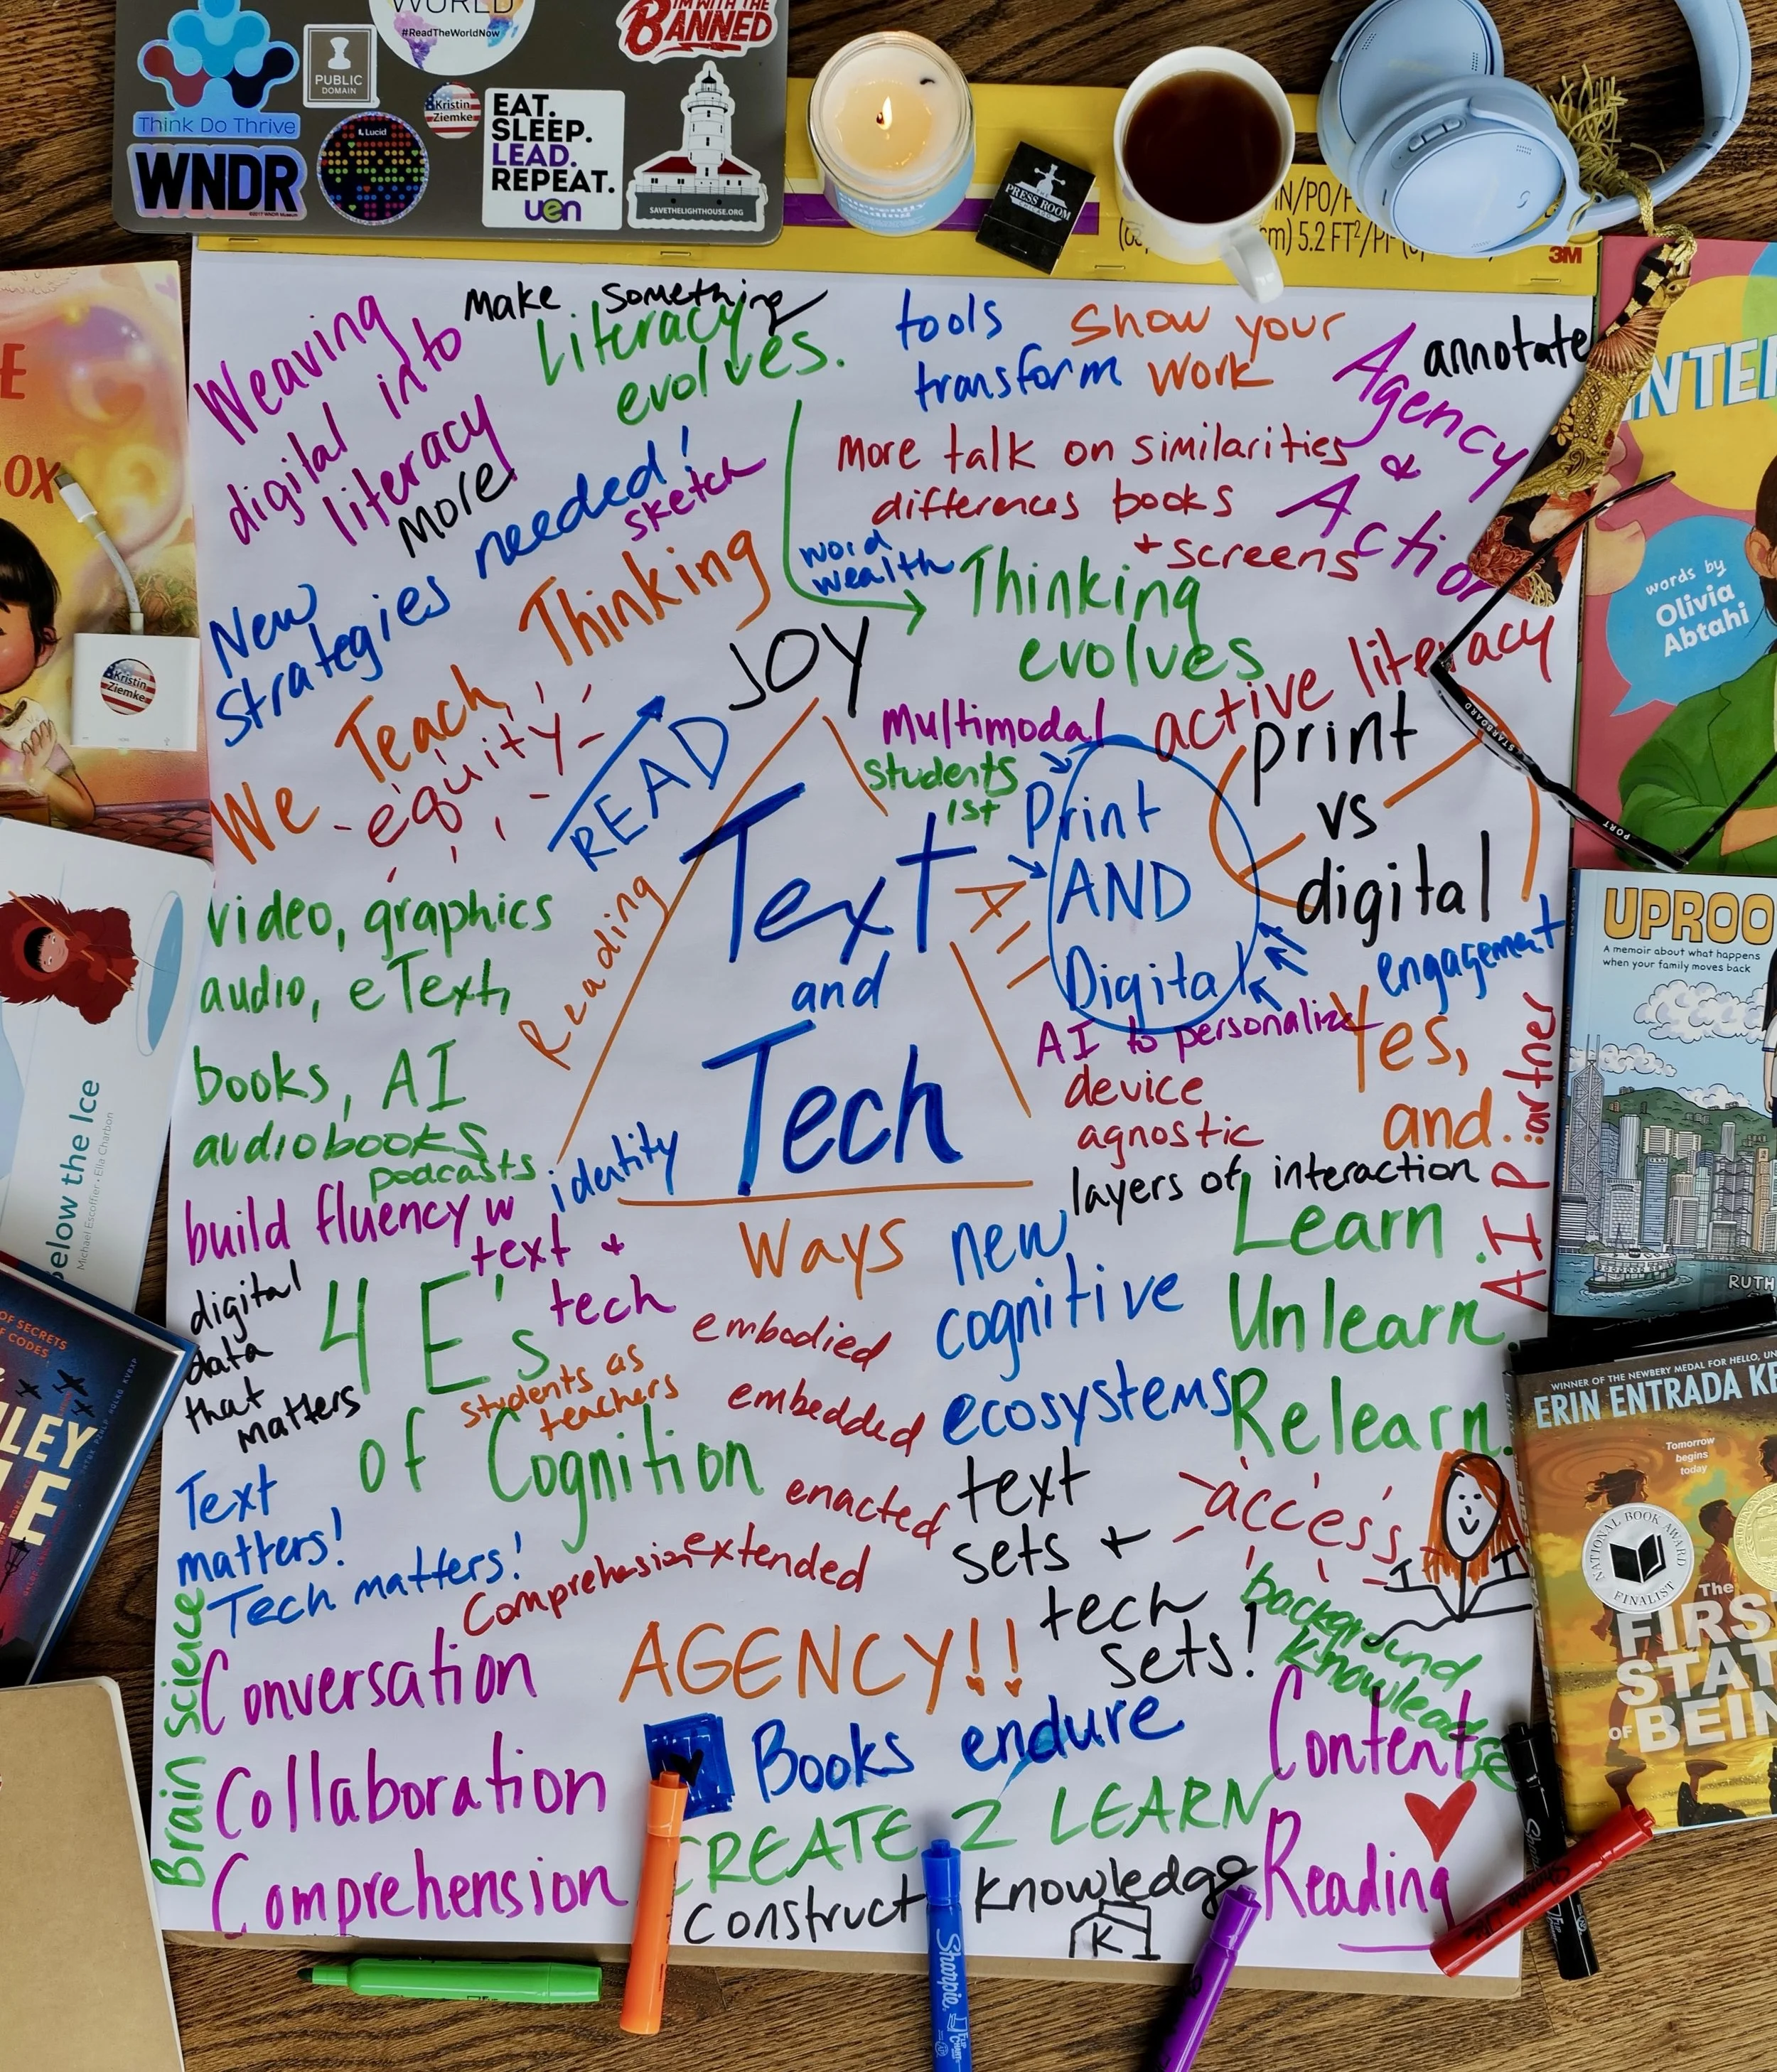 WORLD
#ReadTheWorldNow
I'M WITH THE
BANNED
PUBLIC
DOMAIN
Think Do Thrive
WNDR
Lucid
Kristin
Ziemke
EAT.
SLEEP.
LEAD.
REPEAT.
uen
SAVETHELIGHTHOUSE.ORG
PRESS ROOM
IN/PO/P
m) 5.2 FT²/PI
3M
Make something
Weaving
digital into
literacy
more
Literacy
evolves.
tools
transform
Show your
work
Agency
&
Action
annotate
New
strategies needed!
sketch
More talk on similarities
differences books
+ screens
word
wealth
Thinking
evolves
We Teach Thinking
equity
JOY
READ
Reading
active literacy
Multimodal
students
1st
Print
AND
Digital
print
vs
digital
Text
and
Tech
AI
engagement
video, graphics
audio, eText,
books, AI
audiobooks
podcasts
identity
AI to personalize
device
agnostic
Yes,
and.
AI Partner
layers of interaction
build fluency w
text +
tech
digital
data
that
matters
4 E's
of Cognition
students as
teachers
Ways
embodied
embedded
enacted
extended
new
cognitive
ecosystems
Learn.
Unlearn.
Relearn.
Text
matters!
Tech matters!
Comprehension
text
sets +
tech
sets!
access
background
knowledge
Brain science
Conversation
Collaboration
Comprehension
AGENCY!!
Books endure
CREATE 2 LEARN
Construct knowledge
K
Content
Reading
E
OX
Kristin
Ziemke
elow the Ice
Michael Escoffier • Ella Charbon
OF SECRETS
CODES
LEY
E
NTE
words by
Olivia
Abtahi
STARBOARD
PORT
UPROO
A memoir about what happens
when your family moves back
RUTH
WINNER OF THE NEWBERY MEDAL FOR HELLO, UN
ERIN ENTRADA KE
Tomorrow
begins
today
NATIONAL BOOK AWARD
FINALIST
The
FIRS
STAT
OF BEIN
Sharpie
Sharpie